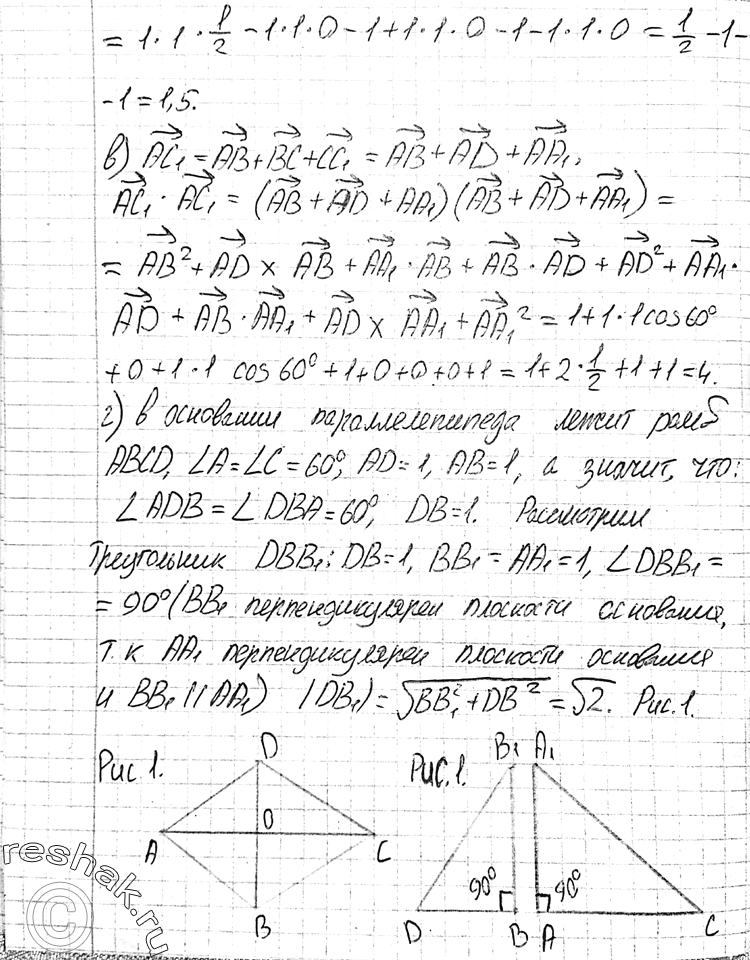 = 1·1·1/2 - 1·1·0 - 1 + 1·1·0 - 1 - 1·1·0 = 1/2 - 1 -
- 1 = 1,5.
в) AC₁ = AB + BC + CC₁ = AB + AD + AA₁,
AC₁ · AC₁ = (AB + AD + AA₁)(AB + AD + AA₁) =
= AB² + AD × AB + AA₁ · AB + AB · AD + AD² + AA₁ ·
AD + AB · AA₁ + AD × AA₁ + AA₁² = 1 + 1·1 cos 60°
+ 0 + 1·1 cos 60° + 1 + 0 + 0 + 0 + 1 = 1 + 2·1/2 + 1 + 1 = 4.
г) в основании параллелепипеда лежит ромб
ABCD, ∠A = ∠C = 60°, AD = 1, AB = 1, а значит, что:
∠ADB = ∠DBA = 60°, DB = 1. Рассмотрим
треугольник DBB₁: DB = 1, BB₁ = AA₁ = 1, ∠DBB₁ =
= 90° (BB₁ перпендикулярен плоскости основания,
т.к AA₁ перпендикулярен плоскости основания
и BB₁ || AA₁) |DB₁| = √BB₁² + DB² = √2. Рис. 1.
Рис 1.
D
O
A
C
B
Рис. 1.
B₁ A₁
90° 90°
D B A C
reshak.ru
©